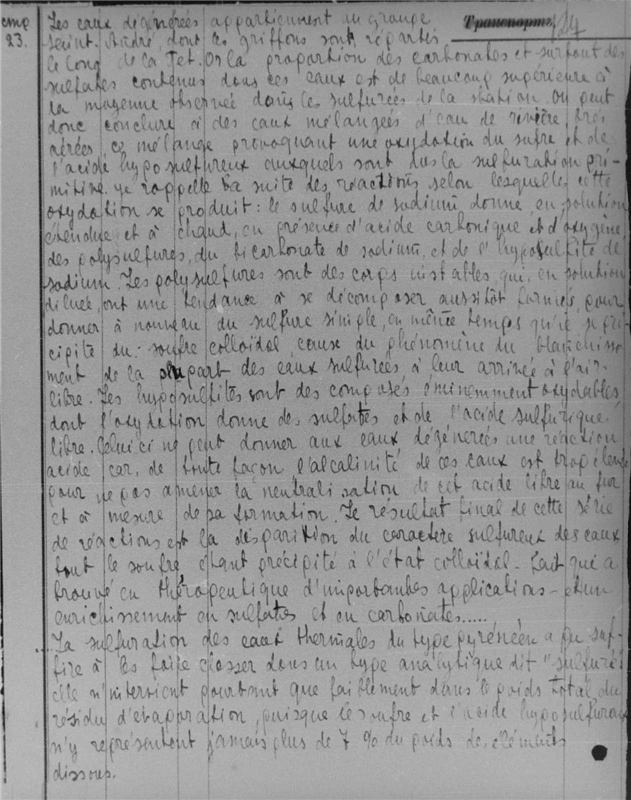 cmp
23.
Транспортъ
124
Les eaux dégénérées appartiennent au groupe
Saint-André, dont les griffons sont répartis
le long de la Tet. Or la proportion des carbonates et surtout des
sulfates contenus dans ces eaux est de beaucoup supérieure à
la moyenne observée dans les sulfurées de la station. On peut
donc conclure à des eaux mélangées d'eau de rivière très
aérées ce mélange provoquant une oxydation du sufre et de
l'acide hyposulfureux auxquels sont dus la sulfuration pri-
mitive. Je rappelle la suite des réactions selon lesquelles cette
oxydation se produit: le sulfure de sodium donne en solution
étendue et à chaud, en présence d'acide carbonique et d'oxygène
des polysulfures, du bicarbonate de sodium, et de l'hyposulfite de
sodium. Les polysulfures sont des corps instables qui, en solution
diluée, ont une tendance à se décomposer aussitôt formés, pour
donner à nouveau du sulfure simple, en même temps qu'il se pré-
cipite du soufre colloïdal, cause du phénomène du blanchisse-
ment de la plupart des eaux sulfurées à leur arrivée à l'air
libre. Les hyposulfites sont des composés éminemment oxydables
dont l'oxydation donne des sulfates et de l'acide sulfurique
libre. Celui ci ne peut donner aux eaux dégénerées une réaction
acide car, de toute façon l'alcalinité de ces eaux est trop élevée
pour ne pas amener la neutralisation de cet acide libre au fur
et à mesure de sa formation. Le résultat final de cette série
de réactions est la disparition du caractère sulfureux des eaux
tout le soufre étant précipité à l'état colloïdal - fait qui a
trouvé en thérapeutique d'importantes applications - et un
enrichissement en sulfates et en carbonates.....
La sulfuration des eaux thermales du type pyrénéen a pu suf-
fire à les faire classer dans un type analytique dit "sulfuré"
elle n'intervient pourtant que faiblement dans le poids total du
résidu d'evaporation, puisque le soufre et l'acide hyposulfureux
n'y représentent jamais plus de 7 % du poids de éléments
dissous.